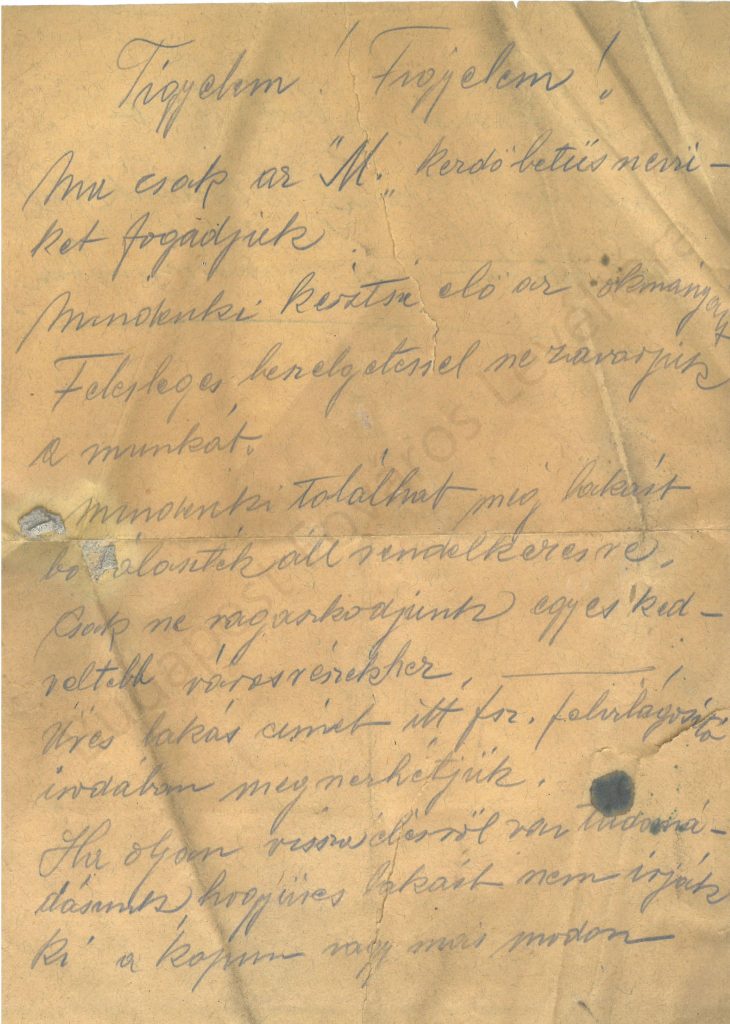 Figyelem! Figyelem!
Ma csak az "M." kezdőbetüs nevü-
ket fogadjuk
Mindenki késztse elő az okmányait
Felesleges beszelgetessel ne zavarjuk
a munkát.
Mindenki találhat még lakást
bő választék áll rendelkezesre.
Csak ne ragaszkodjunk egyes ked-
veltebb városrészekhez.
Üres lakás cimét itt fsz. felvilágositó
irodában megnezhétjük.
Ha oljan visszaélésről van tudomá-
dásunk, hogy üres lakást nem irják
ki a kapun vagy más modon